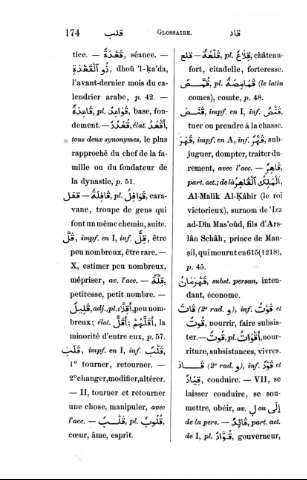 174 قلب GLOSSAIRE. قاد
tice. — قَعْدَةٌ, séance. —
ذُو ٱلْقَعْدَةِ, dhoû 'l-ḳa'da,
l'avant-dernier mois du ca-
lendrier arabe, p. 42. —
قَاعِدَةٌ, pl. قَوَاعِدُ, base, fon-
dement. — قُعْدُدٌ, élat. أَقْعَدُ,
tous deux synonymes, le plus
rapproché du chef de la fa-
mille ou du fondateur de
la dynastie, p. 51.
قفل — قَافِلَةٌ, pl. قَوَافِلُ, cara-
vane, troupe de gens qui
font un même chemin, suite.
قَلَّ, impf. en I, inf. قِلَّةٌ, être
peu nombreux, être rare. —
X, estimer peu nombreux,
mépriser, av. l'acc. — قِلَّةٌ,
petitesse, petit nombre. —
قَلِيلٌ, adj., pl. أَقِلَّاءُ, peu nom-
breux; élat. أَقَلُّ; أَقَلُّهُمْ, la
minorité d'entre eux, p. 57.
قَلَبَ, impf. en I, inf. قَلْبٌ,
1º tourner, retourner. —
2º changer, modifier, altérer.
— II, tourner et retourner
une chose, manipuler, avec
l'acc. — قَلْبٌ, pl. قُلُوبٌ,
cœur, âme, esprit.
قلع — قَلْعَةٌ, pl. قِلَاعٌ, château-
fort, citadelle, forteresse.
قُمَّصٌ, pl. قَمَامِصَةٌ (le latin
comes), comte, p. 48.
قَنَصَ, impf. en I, inf. قَنْصٌ,
tuer ou prendre à la chasse.
قَهَرَ, impf. en A, inf. قَهْرٌ, sub-
juguer, dompter, traiter du-
rement, avec l'acc. — قَاهِرٌ,
part. act.; de là ٱلْمَلِكُ ٱلْقَاهِرُ,
Al-Malik Al-Ḳâhir (le roi
victorieux), surnom de 'Izz
ad-Dîn Mas'oûd, fils d'Ars-
lân Schâh, prince de Mau-
sil, qui mourut en 615 (1218),
p. 45.
قَهْرَمَانٌ, subst. persan, inten-
dant, économe.
قَاتَ (2º rad. و), inf. قَوْتٌ et
قُوتٌ, nourrir, faire subsis-
ter. — قُوتٌ, pl. أَقْوَاتٌ, nour-
riture, subsistances, vivres.
قَادَ (2º rad. و), inf. قَوْدٌ et
قِيَادٌ, conduire. — VII, se
laisser conduire, se sou-
mettre, obéir, av. لِ ou إِلَى
de la pers. — قَائِدٌ, part. act.
de I, pl. قُوَّادٌ, gouverneur,